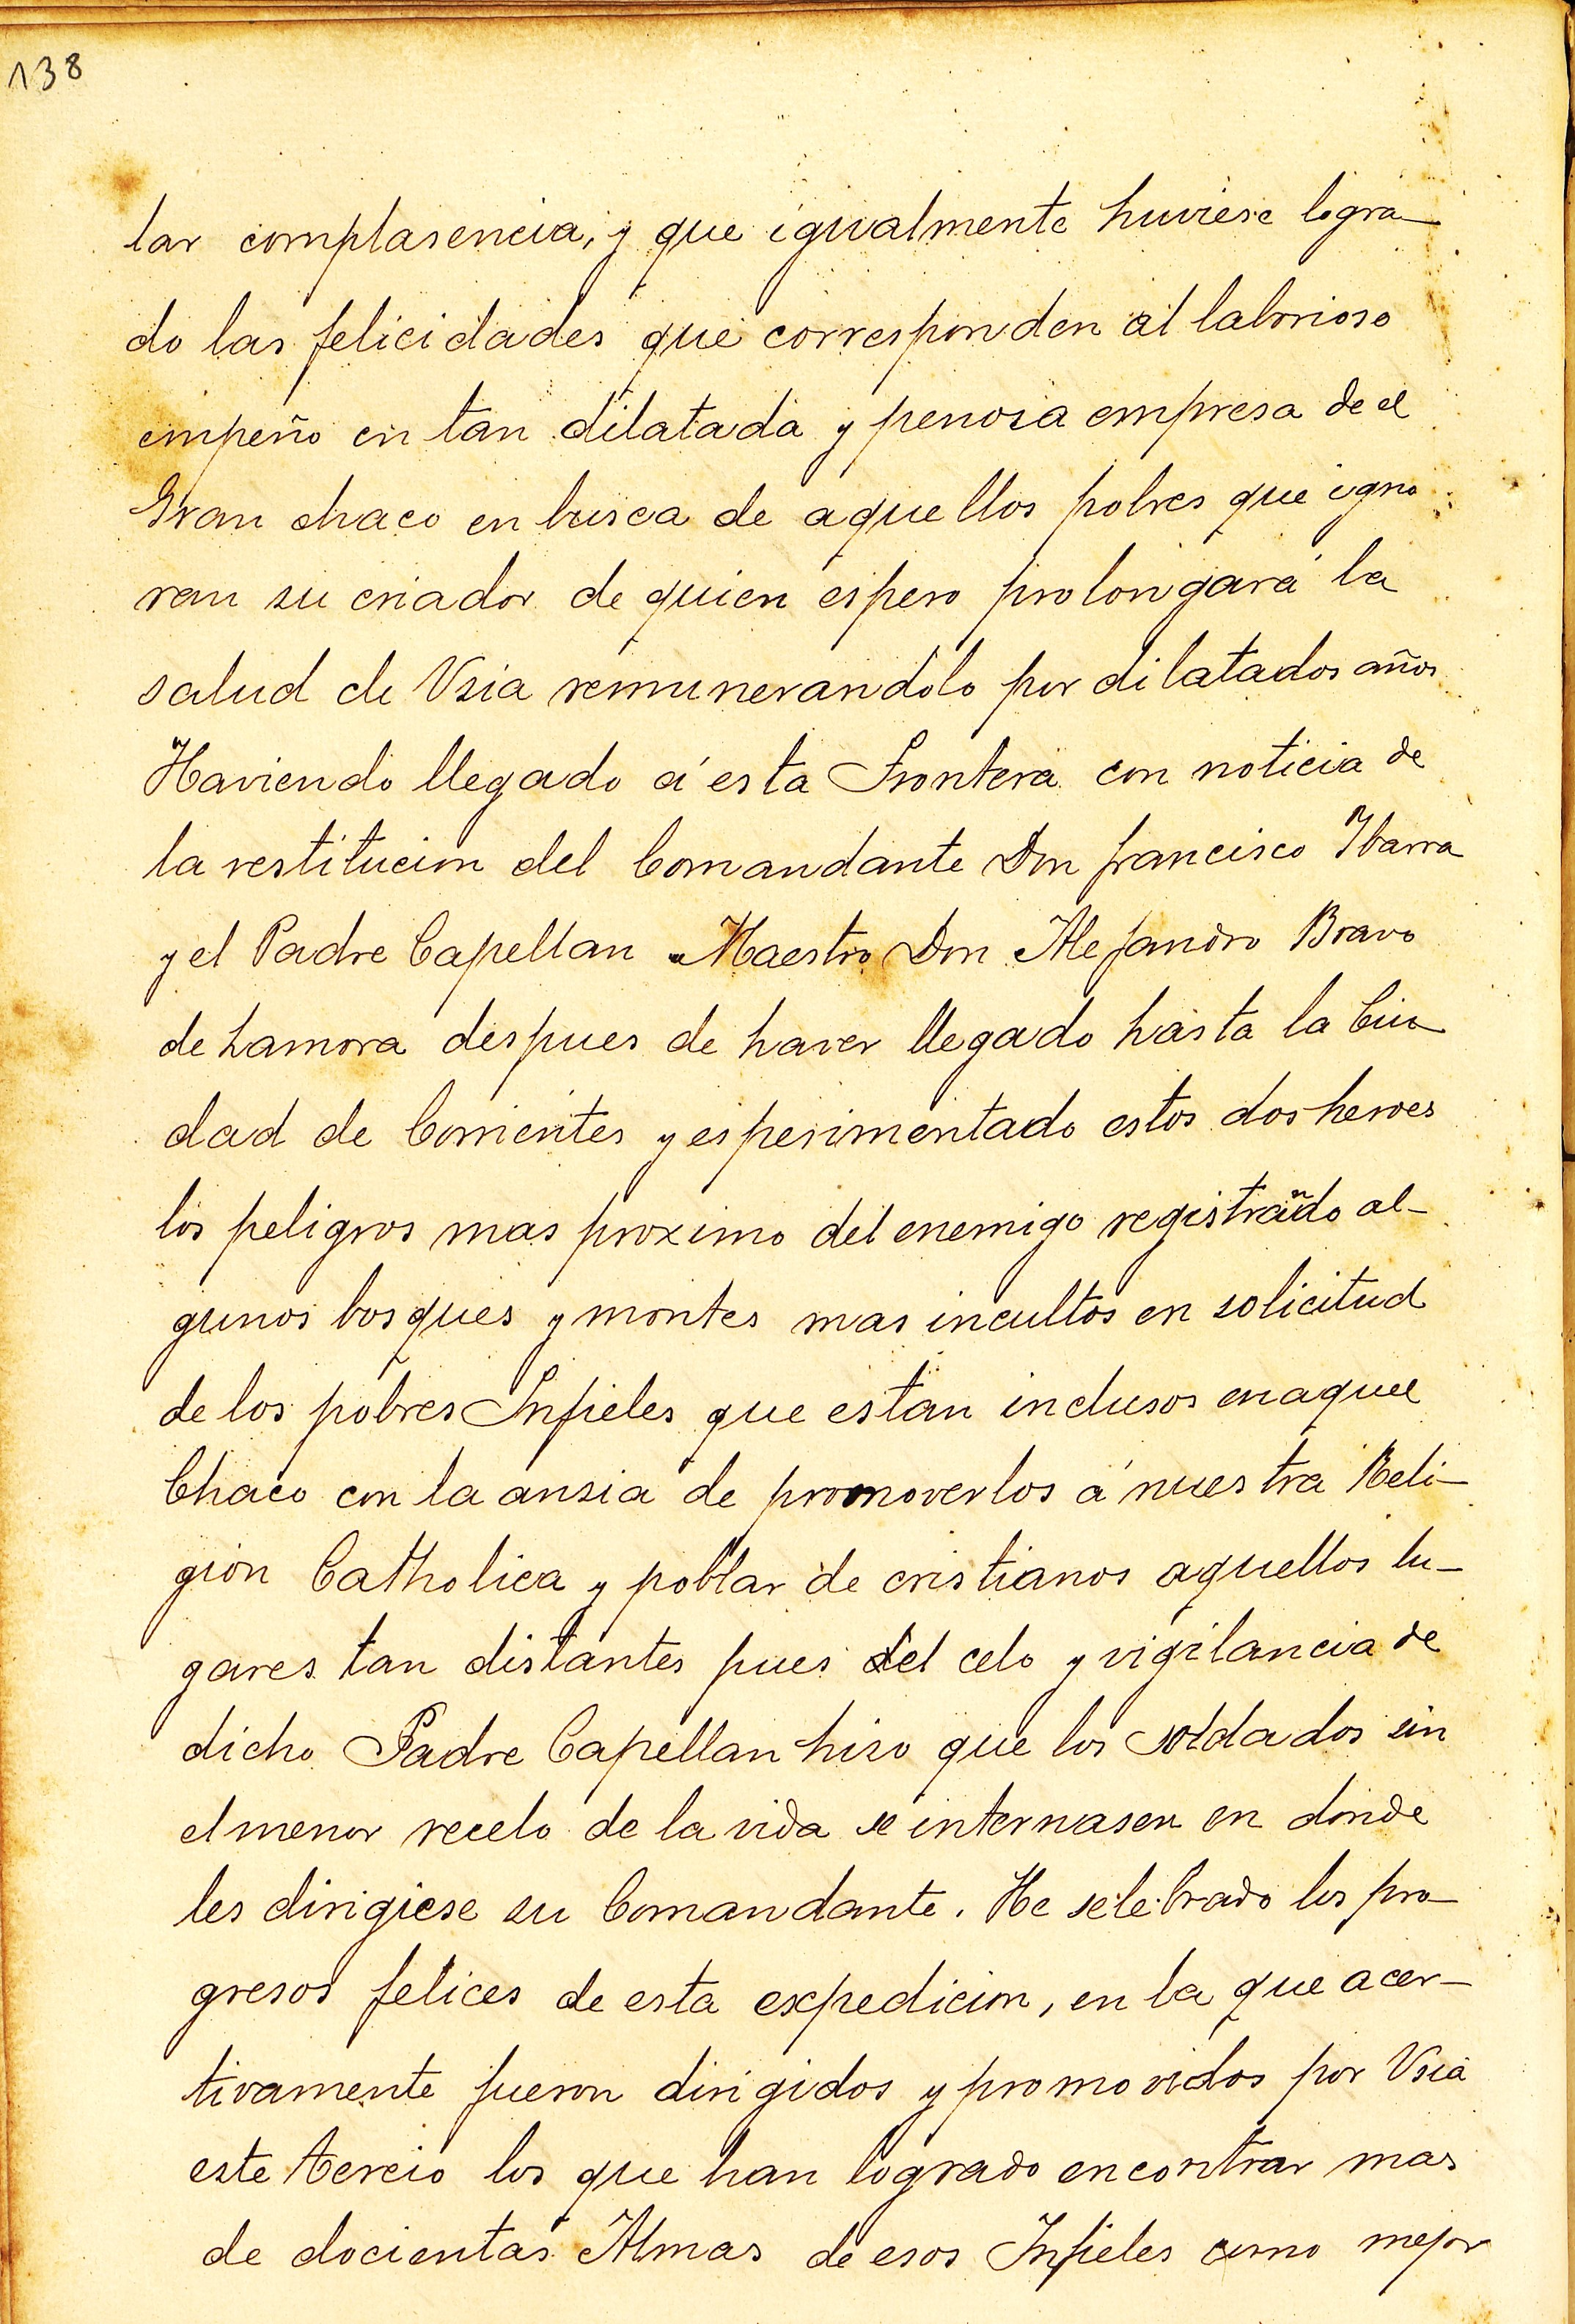 138
lar complasencia, y que igualmente huviese logra-
do las felicidades que corresponden al laborioso
empeño en tan dilatada y penosa empresa de el
Gran chaco en busca de aquellos pobres que igno
ran su criador de quien espero prolongará la
salud de Vsia remunerandolo por dilatados años
Haviendo llegado á esta Frontera con noticia de
la restitucion del Comandante Don francisco Ibarra
y el Padre Capellan Maestro Don Alejandro Bravo
de Zamora despues de haver llegado hasta la Ciu-
dad de Corrientes y esperimentado estos dos heroes
los peligros mas proximo del enemigo registrando al-
gunos bosques y montes mas incultos en solicitud
de los pobres Infieles que estan inclusos en aquel
Chaco con la ansia de promoverlos á nuestra Reli-
gion Catholica y poblar de cristianos aquellos lu-
gares tan distantes pues del celo y vigilancia de
dicho Padre Capellan hiso que los soldados sin
el menor recelo de la vida se internasen en donde
les dirigiese su Comandante. He selebrado los pro-
gresos felices de esta expedicion, en la que acer-
tivamente fueron dirigidos y promovidos por Vsia
este tercio los que han logrado encontrar mas
de docientas Almas de esos Infieles como mejor